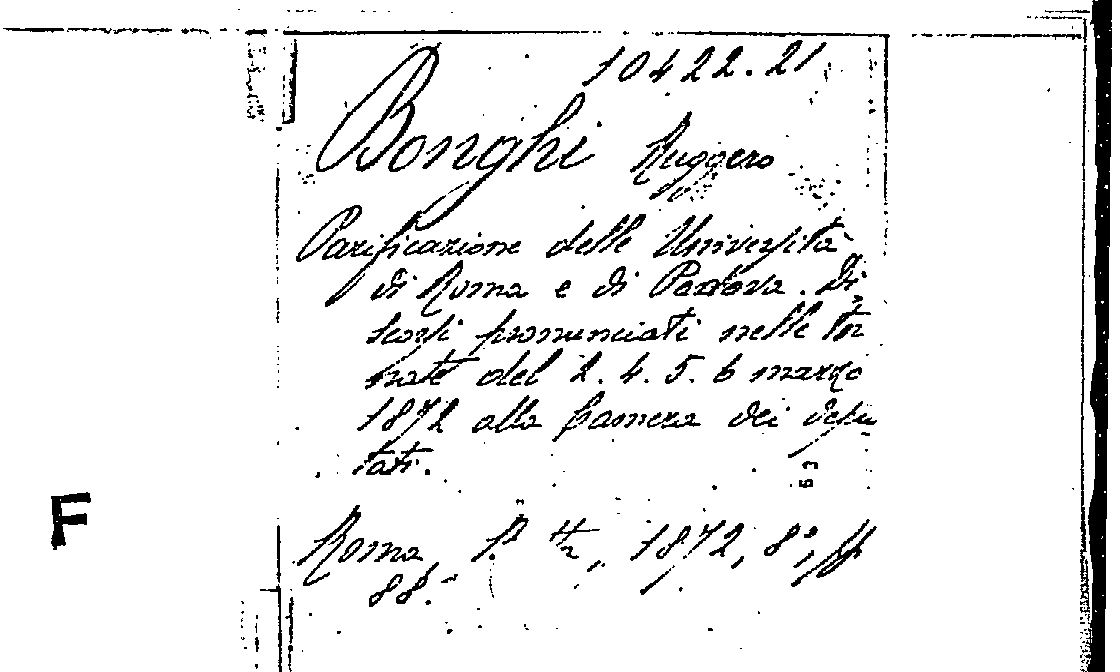 10422.21
Bonghi Ruggero
Parificazione delle Università
di Roma e di Padova. Di
scorsi pronunciati nelle tor
nate del 2. 4. 5. 6 marzo
1872 alla Camera dei depu
tati.
53
F
Roma, 1872, 8°, pp
88.